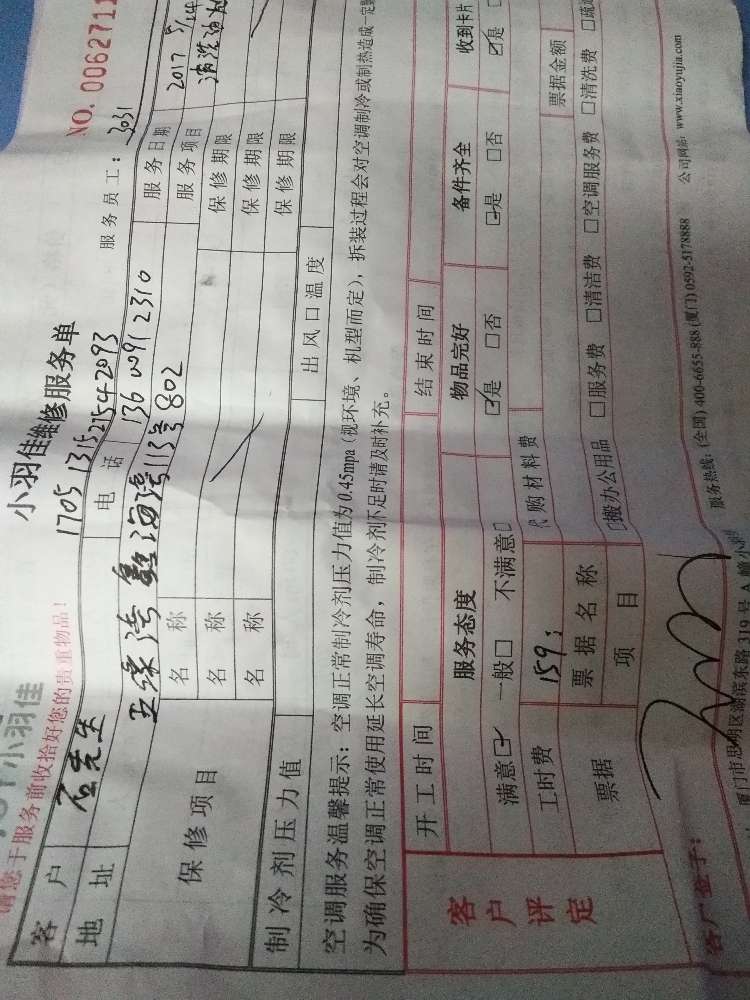 小羽佳
请您于服务前收拾好您的贵重物品!
小羽佳维修服务单
NO. 0062711
1705 13152542093
服务员工: 3031
客户
石先生
电话
136 0091 2310
服务日期
2017 5/14
地址
五缘湾
海湾113号802
服务项目
清洗油烟
保修项目
名称
保修期限
名称
保修期限
名称
保修期限
制冷剂压力值
出风口温度
空调服务温馨提示: 空调正常制冷剂压力值为0.45mpa (视环境、机型而定), 拆装过程会对空调制冷或制热造成一定
为确保空调正常使用延长空调寿命, 制冷剂不足时请及时补充。
客户评定
开工时间
结束时间
服务态度
物品完好
备件齐全
收到卡片
满意☑ 一般□ 不满意□
☑是 □否
☑是 □否
☑是
工时费
159:
代购材料费
票据金额
票据
票据名称
项目
□搬办公用品 □服务费 □清洁费 □空调服务费 □清洗费 □疏
客户签字:
厦门市思明区湖滨东路319号A幢小羽
服务热线: (全国) 400-6655-888 (厦门) 0592-5178888
公司网站: www.xiaoyujia.com